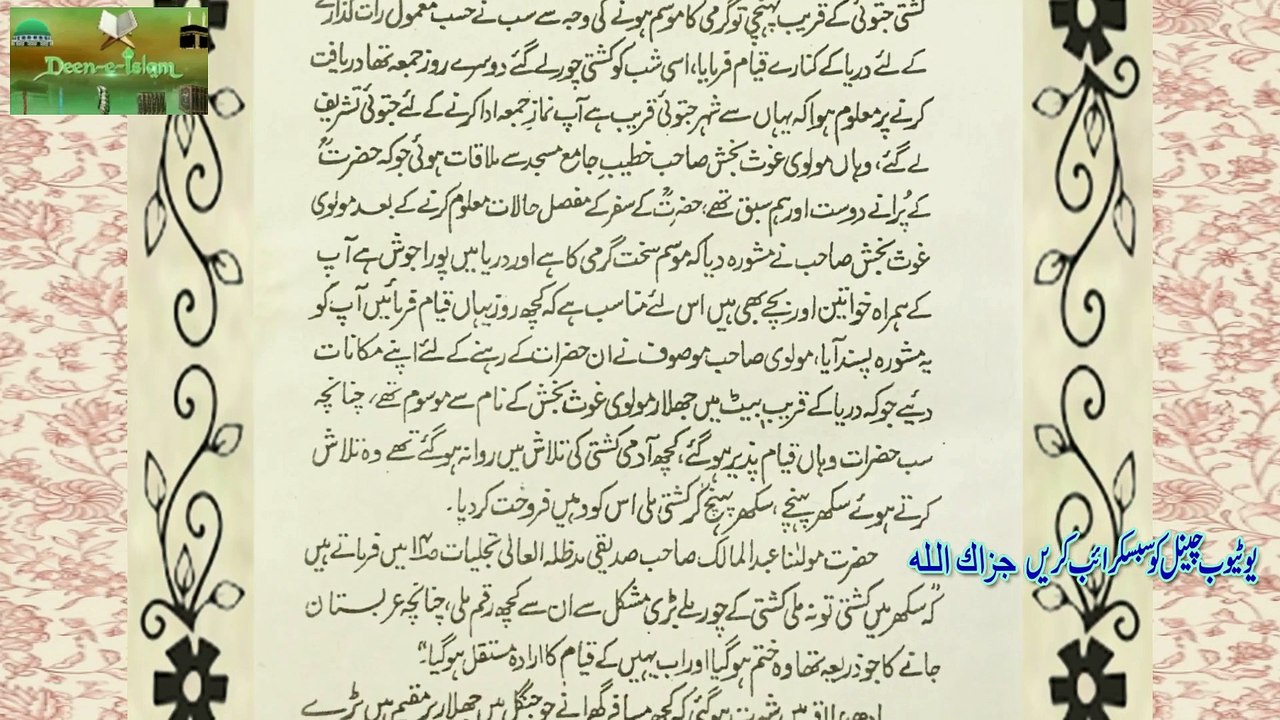 Deen-e-Islam
کشتی جتوئی کے قریب پہنچی تو گرمی کا موسم ہونے کی وجہ سے سب نے حسب معمول رات گذارنے
کے لئے دریا کے کنارے قیام فرمایا، اسی شب کو کشتی چور لے گئے دوسرے روز جمعہ تھا دریافت
کرنے پر معلوم ہوا کہ یہاں سے شہر جتوئی قریب ہے آپ نمازِ جمعہ ادا کرنے کے لئے جتوئی تشریف
لے گئے، وہاں مولوی غوث بخش صاحب خطیب جامع مسجد سے ملاقات ہوئی جو کہ حضرتؒ
کے پُرانے دوست اور ہم سبق تھے، حضرتؒ کے سفر کے مفصل حالات معلوم کرنے کے بعد مولوی
غوث بخش صاحب نے مشورہ دیا کہ موسم سخت گرمی کا ہے اور دریا میں پورا جوش ہے آپ
کے ہمراہ خواتین اور بچے بھی ہیں اس لئے مناسب ہے کہ کچھ روز یہاں قیام فرمائیں آپ کو
یہ مشورہ پسند آیا، مولوی صاحب موصوف نے ان حضرات کے رہنے کے لئے اپنے مکانات
دیئے جو کہ دریا کے قریب بیٹ میں جھلار مولوی غوث بخش کے نام سے موسوم تھے، چنانچہ
سب حضرات وہاں قیام پذیر ہو گئے، کچھ آدمی کشتی کی تلاش میں روانہ ہو گئے تھے وہ تلاش
کرتے ہوئے سکھر پہنچے، سکھر پہنچ کر کشتی ملی اس کو وہیں فروخت کر دیا۔
حضرت مولٰنا عبدالمالک صاحب صدیقی مدظلہ العالی تجلیات ص۱۴ میں فرماتے ہیں
"کہ سکھر میں کشتی تو نہ ملی کشتی کے چور ملے بڑی مشکل سے ان سے کچھ رقم ملی، چنانچہ عربستان
جانے کا جو ذریعہ تھا وہ ختم ہو گیا اور اب یہیں کے قیام کا ارادہ مستقل ہو گیا۔"
یوٹیوب چینل کو سبسکرائب کریں جزاك الله